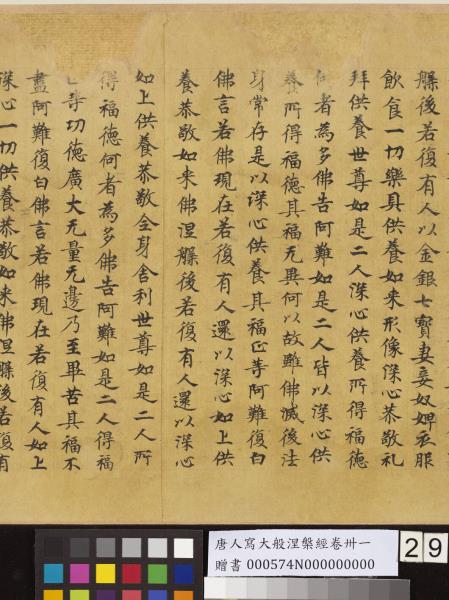 槃後若復有人以金銀七寶妻妾奴婢衣服
飲食一切樂具供養如來形像深心恭敬礼
拜供養世尊如是二人深心供養所得福德
何者為多佛告阿難如是二人皆以深心供
養所得福德其福无異何以故雖佛滅後法
身常存是以深心供養其福正等阿難復白
佛言若佛現在若復有人還以深心如上供
養恭敬如来佛涅槃後若復有人還以深心
如上供養恭敬全身舍利世尊如是二人所
得福德何者為多佛告阿難如是二人得福
等功德廣大无量无邊乃至畢苦其福不
盡阿難復白佛言若佛現在若復有人如上
深心一切供養恭敬如来佛涅槃後若復有
唐人寫大般涅槃經卷卅一
贈書 000574N000000000
29